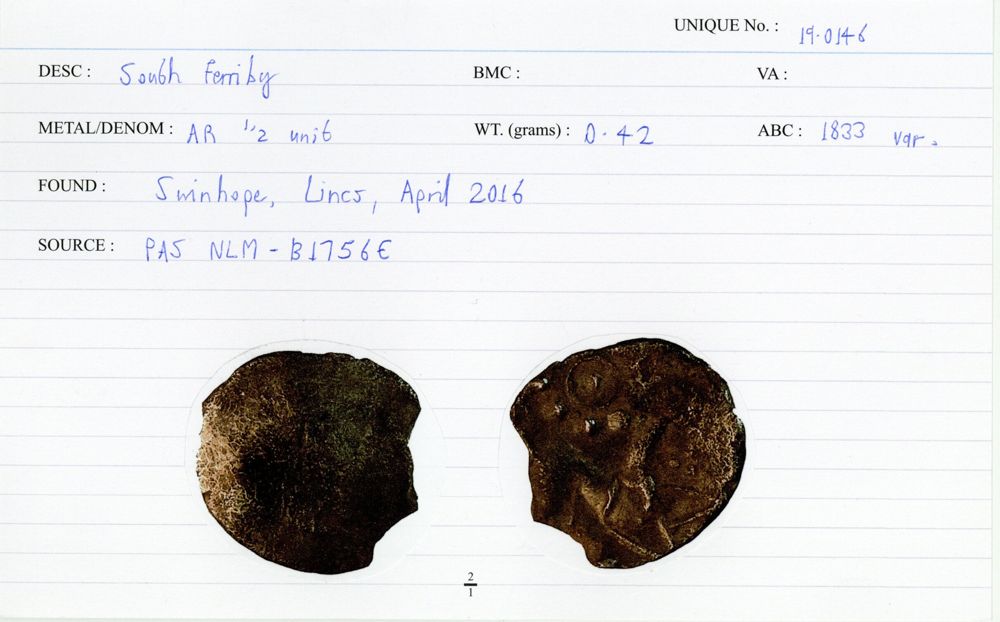 UNIQUE No. : 19.0146
DESC : South Ferriby BMC : VA :
METAL/DENOM : AR 1/2 unit WT. (grams) : 0.42 ABC : 1833 var.
FOUND : Swinhope, Lincs, April 2016
SOURCE : PAS NLM - B1756E
2
1